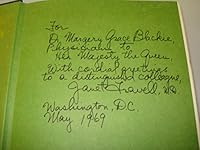 For
Dr. Margery Grace Blackie,
Physician to
Her Majesty the Queen,
With cordial greetings
to a distinguished colleague,
Janet Travell, MD
Washington, D.C.
May 1969